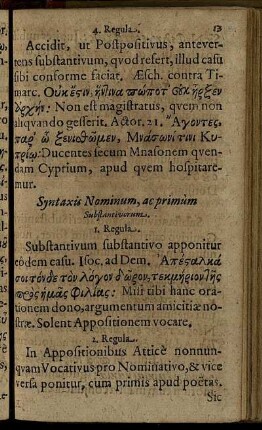 4. Regula. 13
Accidit, ut Postpositivus, antever-
tens substantivum, qvod refert, illud casu
sibi conforme faciat. Æsch. contra Ti-
marc. Οὐκ ἔςιν, ἥντινα πώποτ᾽ οὐκ ἦρξεν
ἀρχήν: Non est magistratus, qvem non
aliqvando gesserit. Actor. 21. Ἄγοντες
παρ᾽ ᾧ ξενισθῶμεν, Μνάσωνί τινι Κυ-
πρίῳ: Ducentes secum Mnasonem qven-
dam Cyprium, apud qvem hospitare-
mur.
Syntaxis Nominum, ac primùm
Substantivorum.
1. Regula.
Substantivum substantivo apponitur
eodem casu. Isoc, ad Dem. Ἀπέςαλκά
σοι τόνδε τὸν λόγον δῶρον, τεκμήριον τῆς
πρὸς ἡμᾶς φιλίας: Misi tibi hanc ora-
tionem dono, argumentum amicitiæ no-
stræ. Solent Appositionem vocare.
2. Regula.
In Appositionibus Atticè nonnun-
qvam Vocativus pro Nominativo, & vice
versa ponitur, cum primis apud poëtas.
Sic